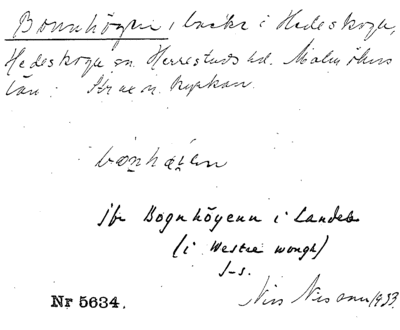 Bonnhögen, backe i Hedeskoga,
Hedeskoga sn Herrestads hd. Malmöhus
län. Str ae n. kyrkan.
jfr Bognhöyenn i Landeb
(i Westre wongh)
J-s.
Nr 5634.
Nils Nilsson 1933.